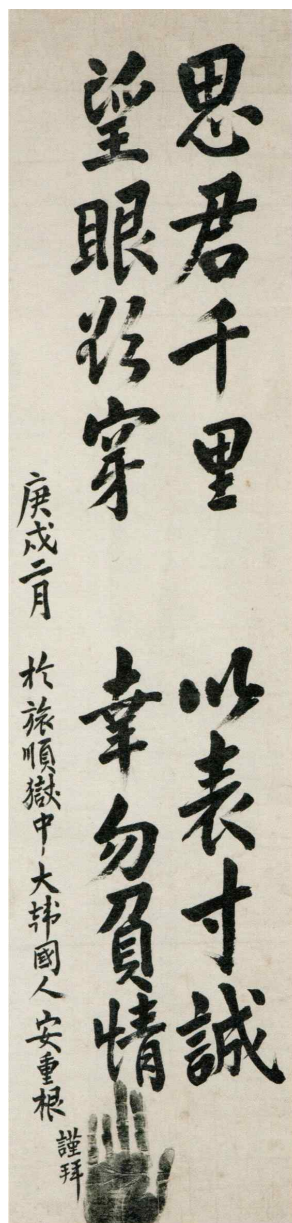 思君千里
望眼欲穿
以表寸誠
幸勿負情
庚戌二月 於旅順獄中 大韓國人 安重根 謹拜